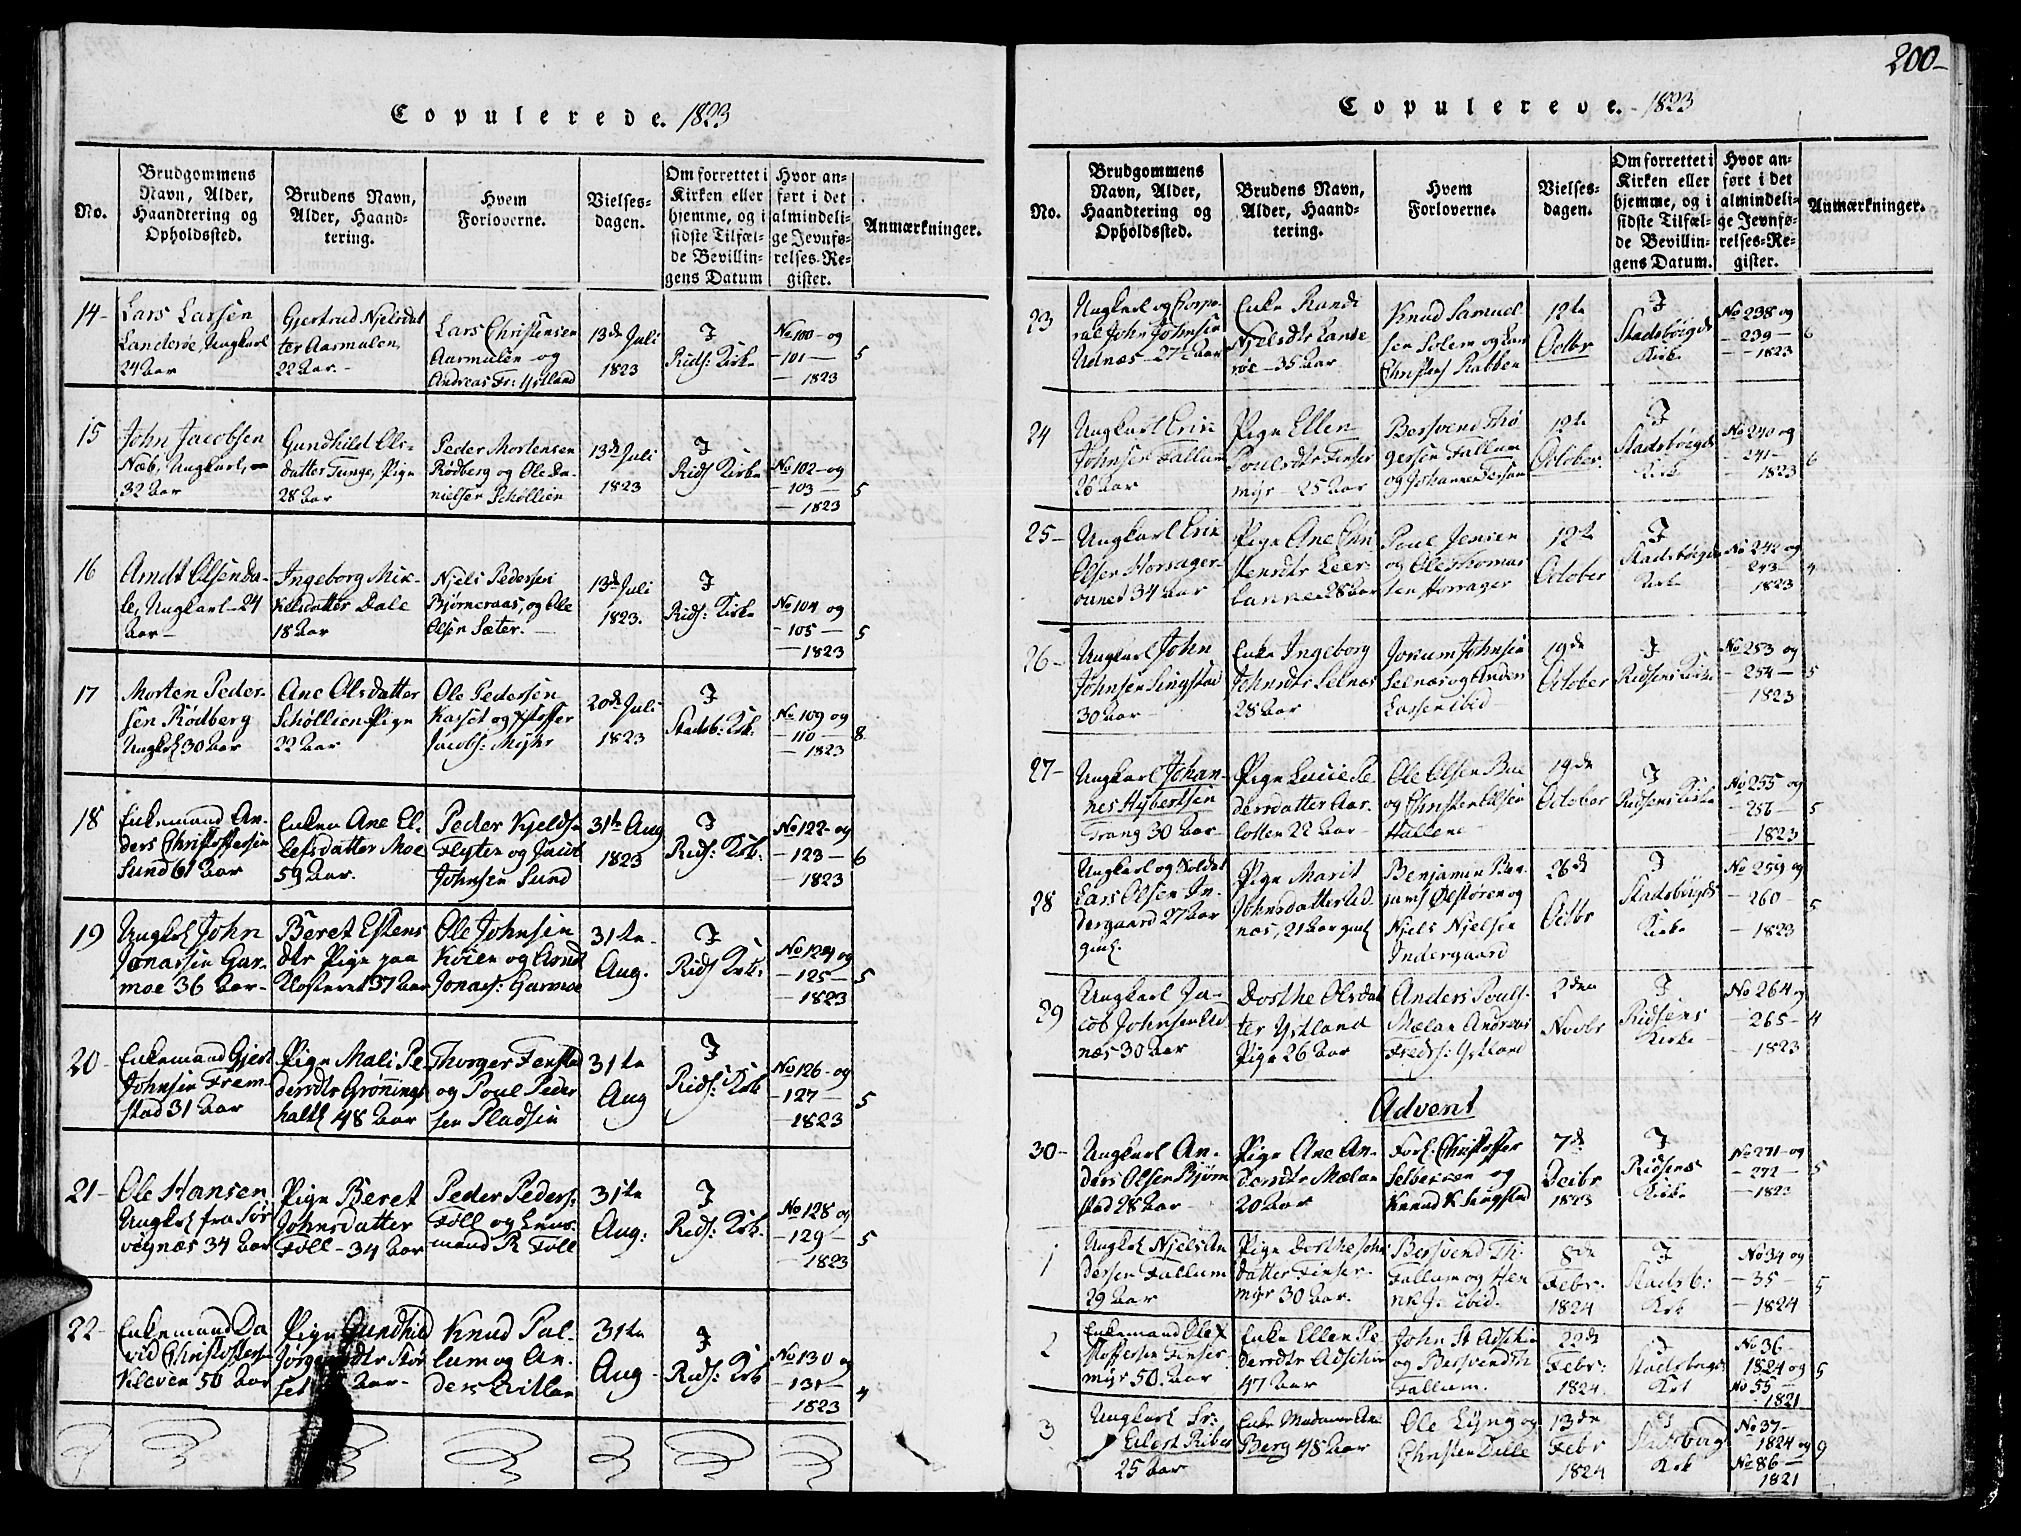 Copulerede. 1823
No.
Brudgommens
Navn, Alder,
Haandtering og
Opholdssted.
Brudens Navn,
Alder, Haand-
tering.
Hvem
Forloverne.
Vielses-
dagen.
Om forrettet i
Kirken eller
hjemme, og i
sidste Tilfæl-
de Bevillin-
gens Datum
Hvor an-
ført i det
almindeli-
ge Jevnfø-
relses-Re-
gister.
Anmærkninger.
14-
Lars Larsen
Landerøe, Ungkarl
24 Aar
Gjertrud Njelsdat
ter Aasmulen,
22 Aar.-
Lars Christensen
Aasmulen og
Andreas Fr: Ystland
13de Juli
1823
I
Rids: Kirke
No 100- og
-101-
-1823
5
15
John Jacobsen
Næb, Ungkarl,
32 Aar
Gundhild Ols-
datter Tunge, Pige
28 Aar
Peder Mortensen
Rødberg og Ole Da-
nielsen Schøllien
13de Juli
1823
I
Rids Kirke
No 102- og
-103-
-1823
5
16
Arndt Olsen Da-
le, Ungkarl-24
Aar-
Ingeborg Mik-
kelsdatter Dale
18 Aar
Njels Pedersen
Bjørneraas, og Ole
Olsen Sæter.-
13de Juli
1823.
I
Rids: Kirke
No 104 og
-105-
-1823
5
17
Morten Peder-
sen Rødberg
Ungk. 30 Aar
Ane Olsdatter
Schøllien Pige
22 Aar
Ole Pedersen
Kasset og Xstoffer
Jacobs: Myhr
20de Juli
1823
I
Stadsb: Krk:
No 109 og
-110-
-1823
8
18
Enkemand An-
ders Christoffersen
Sund 61 Aar
Enken Ane El-
lefsdatter Moe
59 Aar.
Peder Kjelds
Flyten og Jacob
Johnsen Sund
31te Aug
1823
I
Rids: Krk:
No 122- og
-123-
-1823
6
19
Ungk. John
Jonassen Gar-
moe 36 Aar-
Beret Estens
dtr Pige paa
Klosteret 37 Aar
Ole Johnsen
Køien og Arndt
Jonas: Garmoe
31te
Aug.
I
Rids Krk:
No 124 og
-125-
-1823
5
20-
Enkemand Gjert
Johnsen Frem-
stad 31 Aar
Pige Mali Pe-
dersdtr Grønings
48 Aar
Thorger Fenstad
og Poul Peder
sen Pladsen
31te
Aug
I
Rids: Krk
No 126- og
-127-
-1823
5
21-
Ole Hansen
Ungk. fra Sør
vognæs 34 Aar
Pige Beret
Johnsdatter
Föll-34 Aar
Peder Peders:
Föll og Lens-
mand R Föll
31te
Aug:
I
Rids: Krk.
No 128 og
-129-
-1823
5
22-
Enkemand Da
vid Christoffers
Kleven 50 Aar
Pige Gundhild
Aar-
Knud Fal-
lum og An-
ders
31te
Aug-
I
Rids: Krk
No 130 og
-131-
-1823
4
200-
Copulerede. 1823
No.
Brudgommens
Navn, Alder,
Haandtering og
Opholdssted.
Brudens Navn,
Alder, Haand-
tering.
Hvem
Forloverne.
Vielses-
dagen.
Om forrettet i
Kirken eller
hjemme, og i
sidste Tilfæl-
de Bevillin-
gens Datum.
Hvor an-
ført i det
almindeli-
ge Jevnfø-
relses-Re-
gister.
Anmærkninger.
23
Ungkarl og Corpo-
ral John Johnsen
Udnæs-27½ Aar
Enke Randi
Njelsdtr Lande
røe-35 Aar
Knud Samuel
sen Solem og Lars
Christens Rabben
12te
Octbr
I
Stadsbøigds
Kirke
No 238 og
-239-
-1823
6
24
Ungkarl Eric
Johnsen Fallum
26 Aar
Pige Ellen
Poulsdtr Finser
myr-25 Aar
Bersvend Thø
gersen Fallum
og Johannes
12te
October.
I
Stadsbøigds
Kirk
No 240 og
-241-
-1823
6
25-
Ungkarl Eric
Olsen Horsager-
ounet 34 Aar
Pige Ane Chri
stensdtr Leer-
28 Aar
Poul Jensen
og Ole Thomas
sen Horsager
12te
October
I
Stadsbøigds
Kirke
No 242 og
-243-
1823
4
26-
Ungkarl John
Johnsen Singstad
30 Aar-
Enke Ingeborg
Johnsdtr Selnæs
28 Aar
Jocum Johnsen
Selnæs og Anders
Larsen ibid-
19de
October
I
Ridsens Kirke
No 253 og
-254-
-1823
5
27-
Ungkarl Johan-
nes Hybertsen
Trang 30 Aar-
Pige Lucie Pe
dersdatter Aar-
lotten 22 Aar-
Ole Olsen Bue
og Christen Olsen
Hallene-
19de
October
I
Ridsens Kirke
No 255 og
-256-
-1823
5
28
Ungkarl og Soldat
Lars Olsen In-
dergaard 27 Aar
Pige Marit
Johnsdatter Ud-
næs, 21 Aar
Benjamin Ben
jams Ølstøren og
Njels Njelsen
Indergaard
26de
Octbr
I
Stadsbøigds
Kirke
No 259 og
-260-
-1823
5
29
Ungkarl Ja-
cob Johnsen Ud
næs 30 Aar
Dorthe Olsdat
ter Ystland
Pige 26 Aar
Anders Pouls-
Mælan Andreas
Freds: Ystland
2den
Novbr
I
Ridsens
Kirke
No 264 og
-265-
-1823
4
Advent
30-
Ungkarl An-
ders Olsen Bjørn
stad 28 Aar-
Pige Ane An
dersdtr Mælan
20 Aar
Forl. Christoffer
Selbekken og
Knud K Singstad
7de
Decbr
1823
I
Ridsens
Kirke
No 271 og
-272-
-1823
5
1
Ungk. Njels An
dersen Fallum
29 Aar
Pige Dorthe John
datter Finser-
myr 30 Aar.
Bersvend Th:
Fallum og Hen
rik J. ibid.
8de
Febr:
1824
I
Stadsb:
Krk
No 34 og
-35-
-1824
5
2
Enkemand Ole X
stoffersen Finser
myr 50. Aar
Enke Ellen Pe
dersdtr
47 Aar
John St
og Bersvend Th
Fallum.
22de
Febr:
1824.
I
Stadsbøigds
Krk
No 36-
1824 og
No 55-
-1821
5
3
Ungkarl Sr:
Eilert Riber
25 Aar
Enke Madame Ane
Berg 48 Aar
Ole Lyng og
Christen Dille
13de
Febr
1824
I
Stadsbøigds
Krk
No 37-
1824 og
No 86-
1821
9